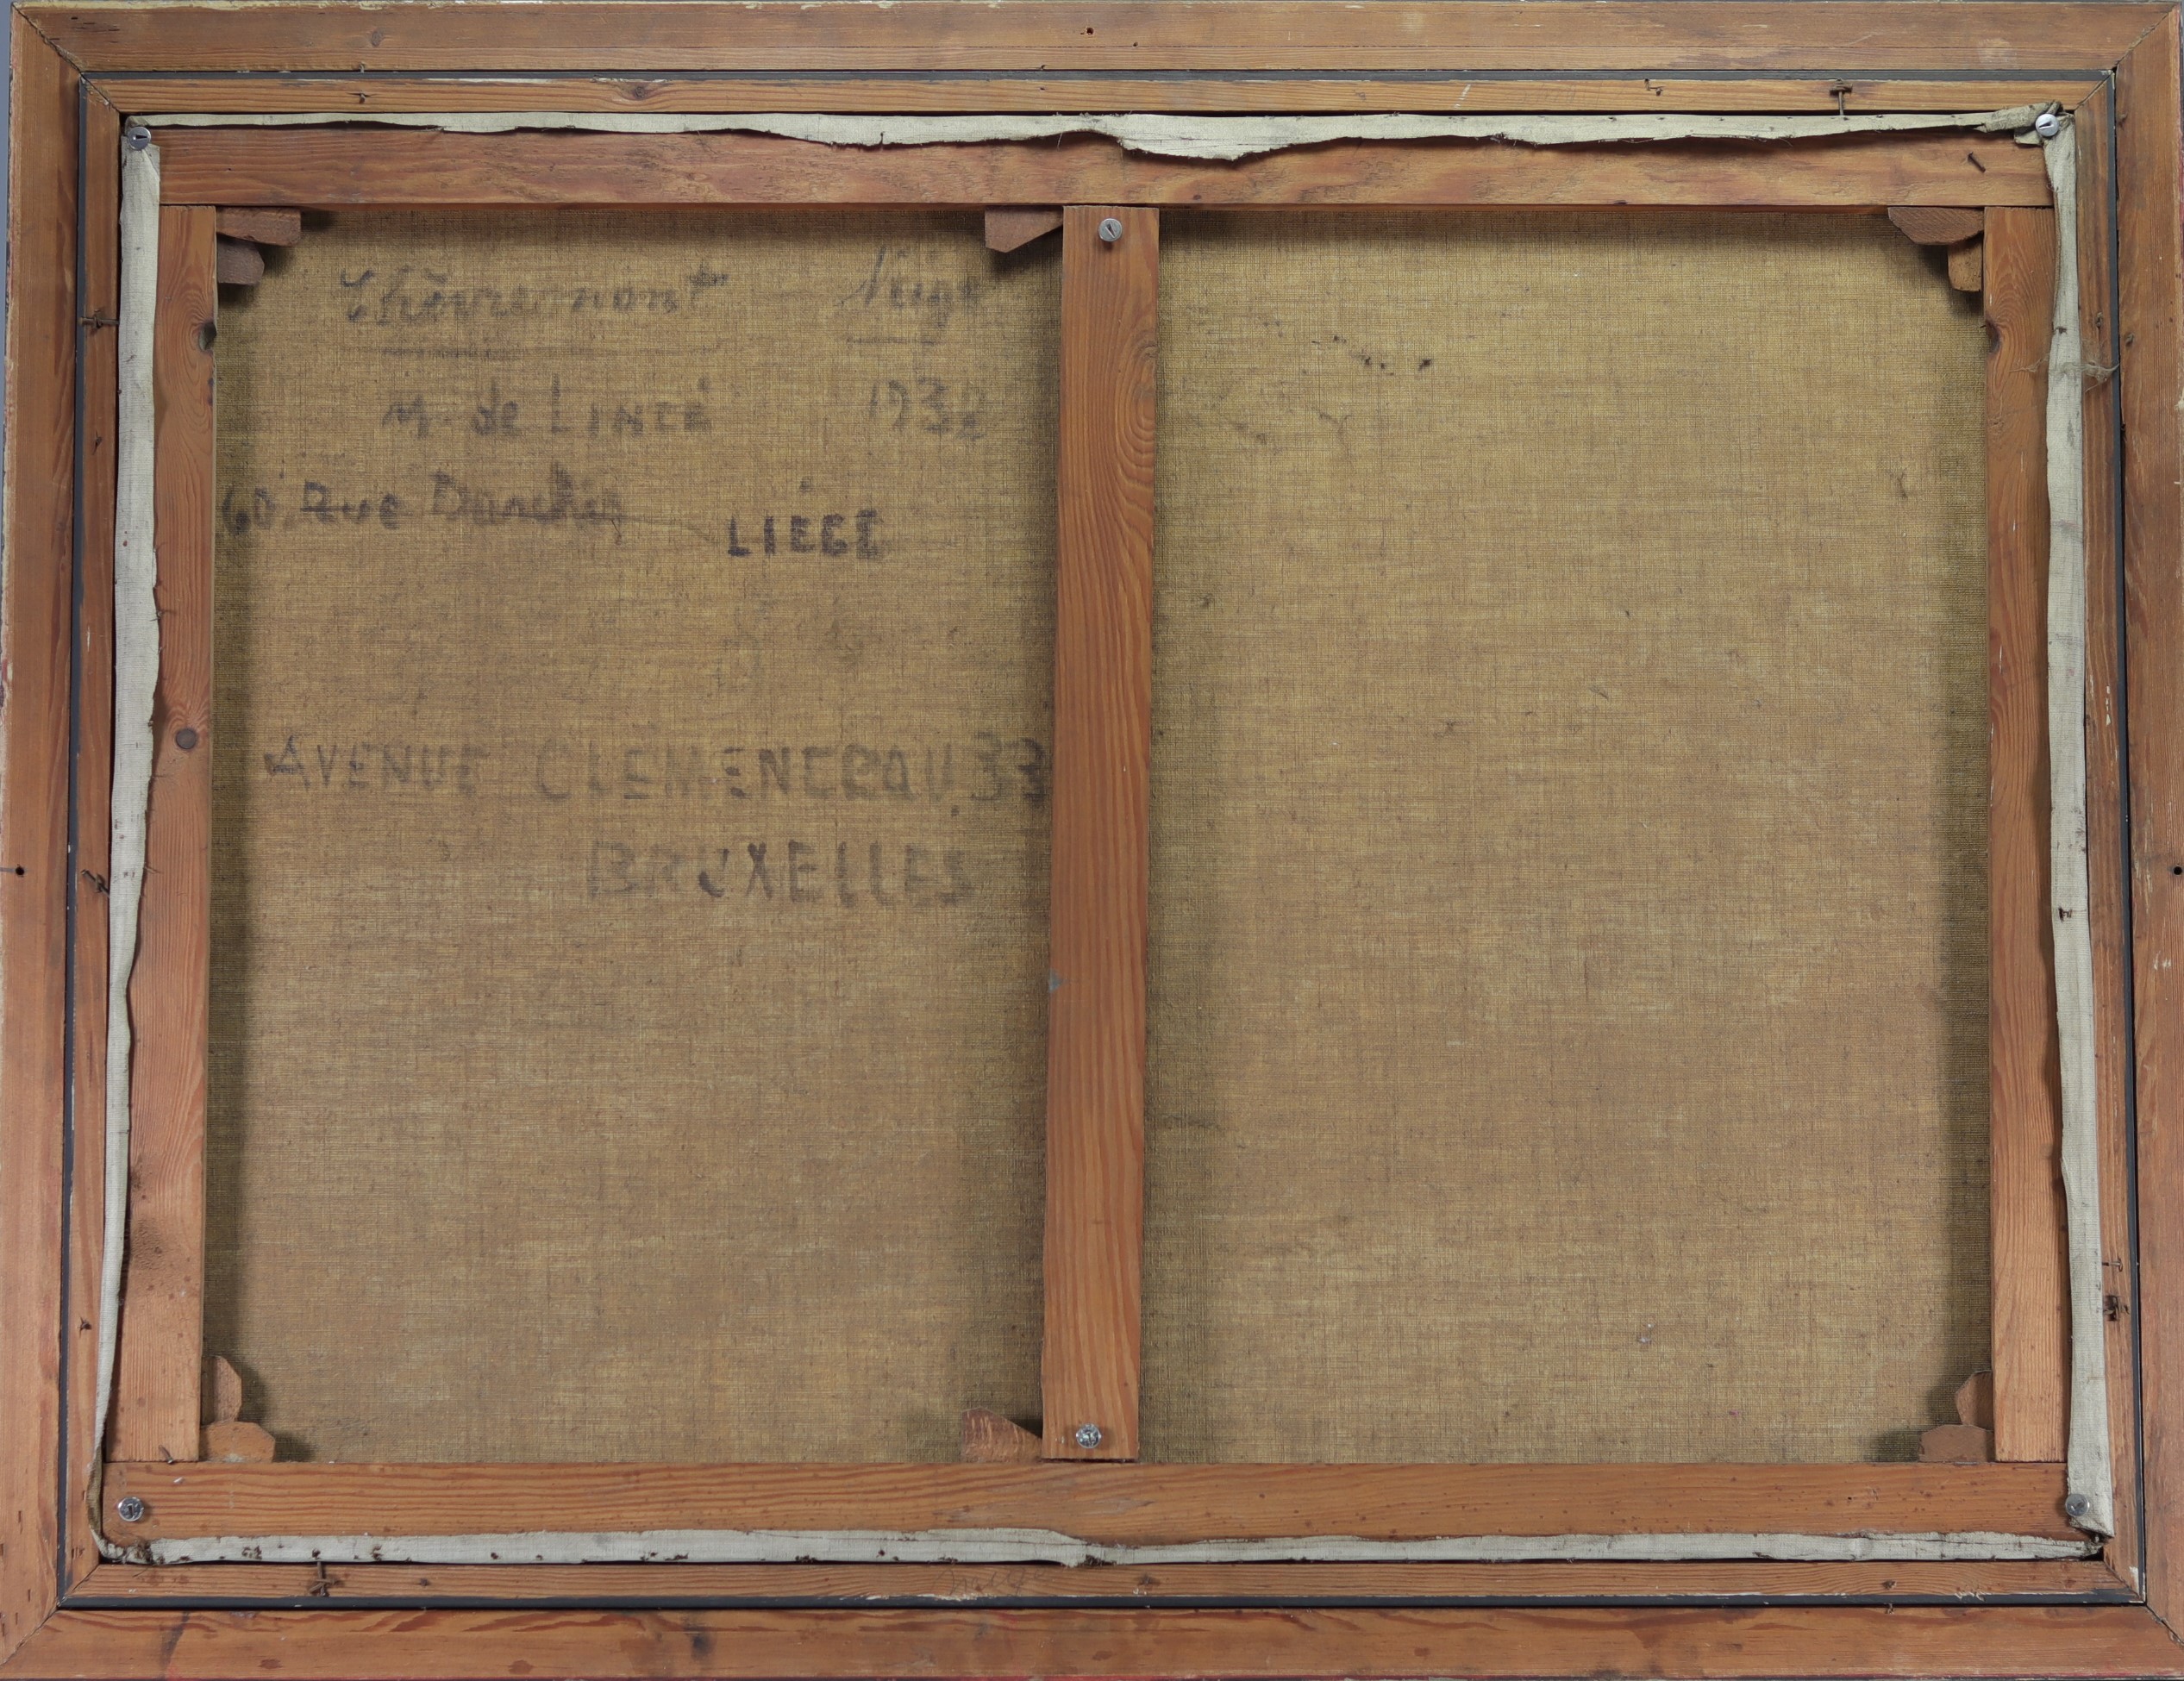 Chèvremont Neige
M. de LINCÉ 1932
60 Rue Darchis LIÉGE
AVENUE CLEMENCEAU, 33
BRUXELLES